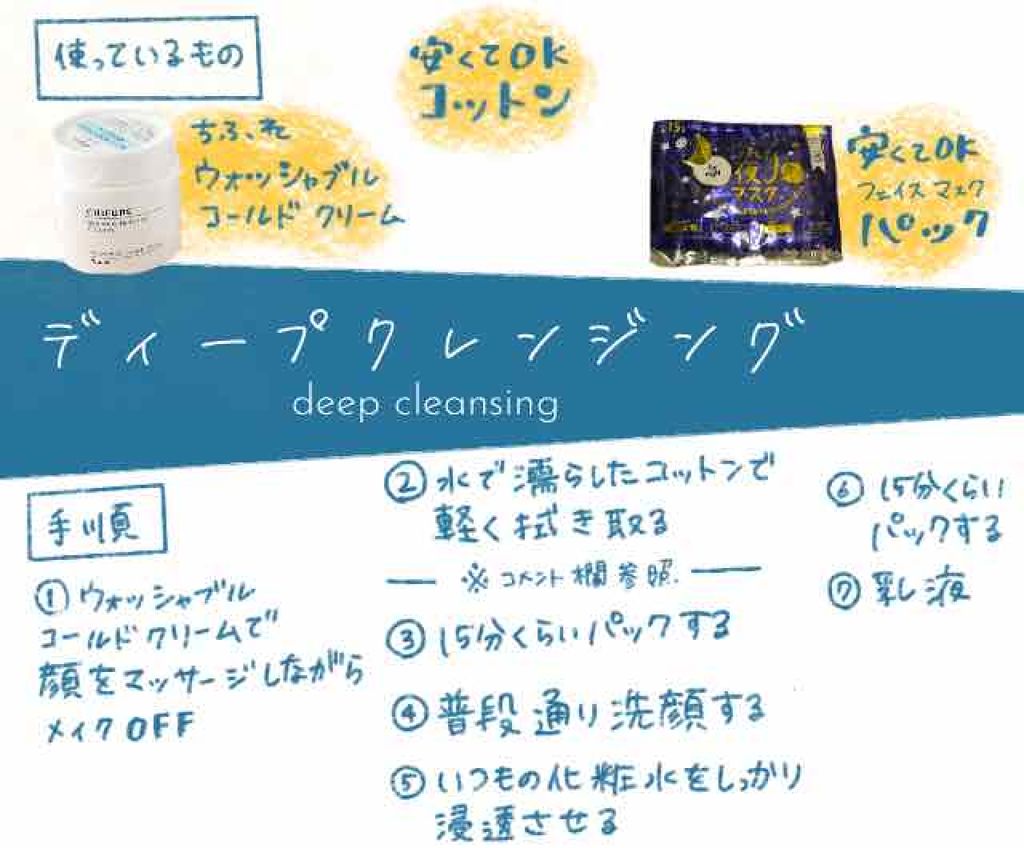 使っているもの
安くてOK
コットン
ちふれ
ウォッシャブル
コールド クリーム
安くてOK
フェイス マスク
パック
マスク
ディープクレンジング
deep cleansing
手順
① ウォッシャブル
コールドクリームで
顔をマッサージしながら
メイクOFF
② 水で濡らしたコットンで
軽く拭き取る
※ コメント欄参照.
③ 15分くらいパックする
④ 普段通り洗顔する
⑤ いつもの化粧水をしっかり
浸透させる
⑥ 15分くらい
パックする
⑦ 乳液